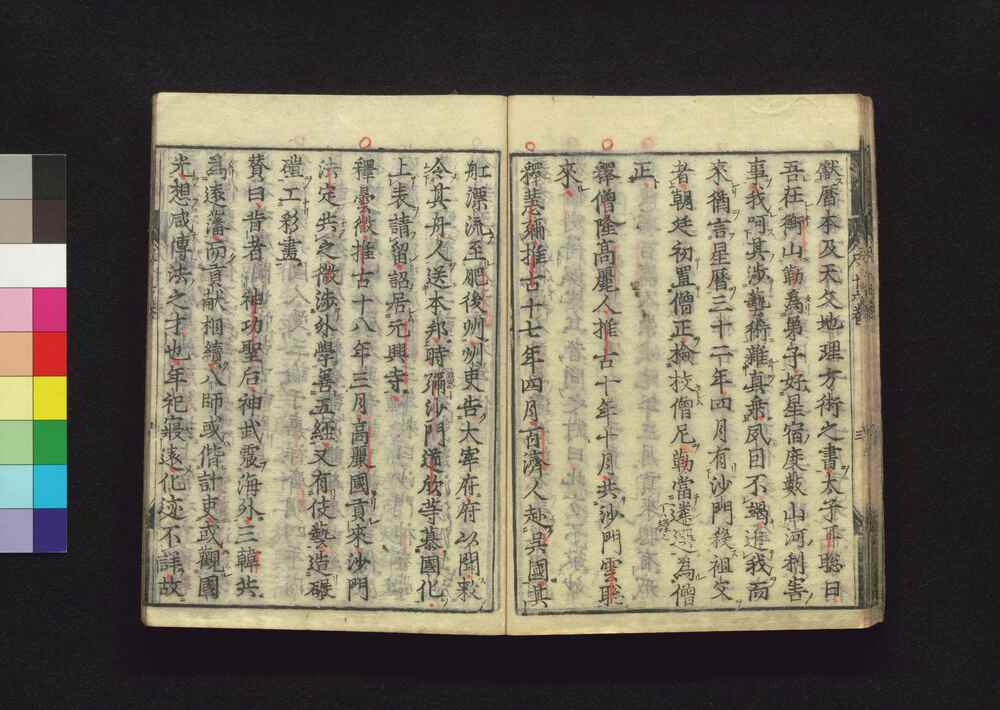 獻曆本及天文地理方術之書太子 聰曰
吾在衡山勤為弟子好星宿度數山河利害
事我呵其渉藝術雜真乘夙因不竭逐我而
來猶言星曆三十二年四月有沙門 祖父
者朝廷初置僧正撿挍僧尼勤當 為僧
正
釋僧隆高麗人推古十年十月共沙門雲聰
來
釋慧彌推古十七年四月百濟人赴吳國其
舡漂流至肥後州州吏告大宰府府以聞敕
令其舟人送本邦時彌沙門道欣等慕國化
上表請留詔居元興寺
釋曇徵推古十八年三月高麗國貢來沙門
法定共之徵渉外學善五經又有伎藝造碾
磑工彩畫
贊曰昔者 神功聖后神武震海外三韓共
為遠藩而貢献相續八師或偕計吏或觀國
光想咸傳法之才也年祀最遠化迹不詳故